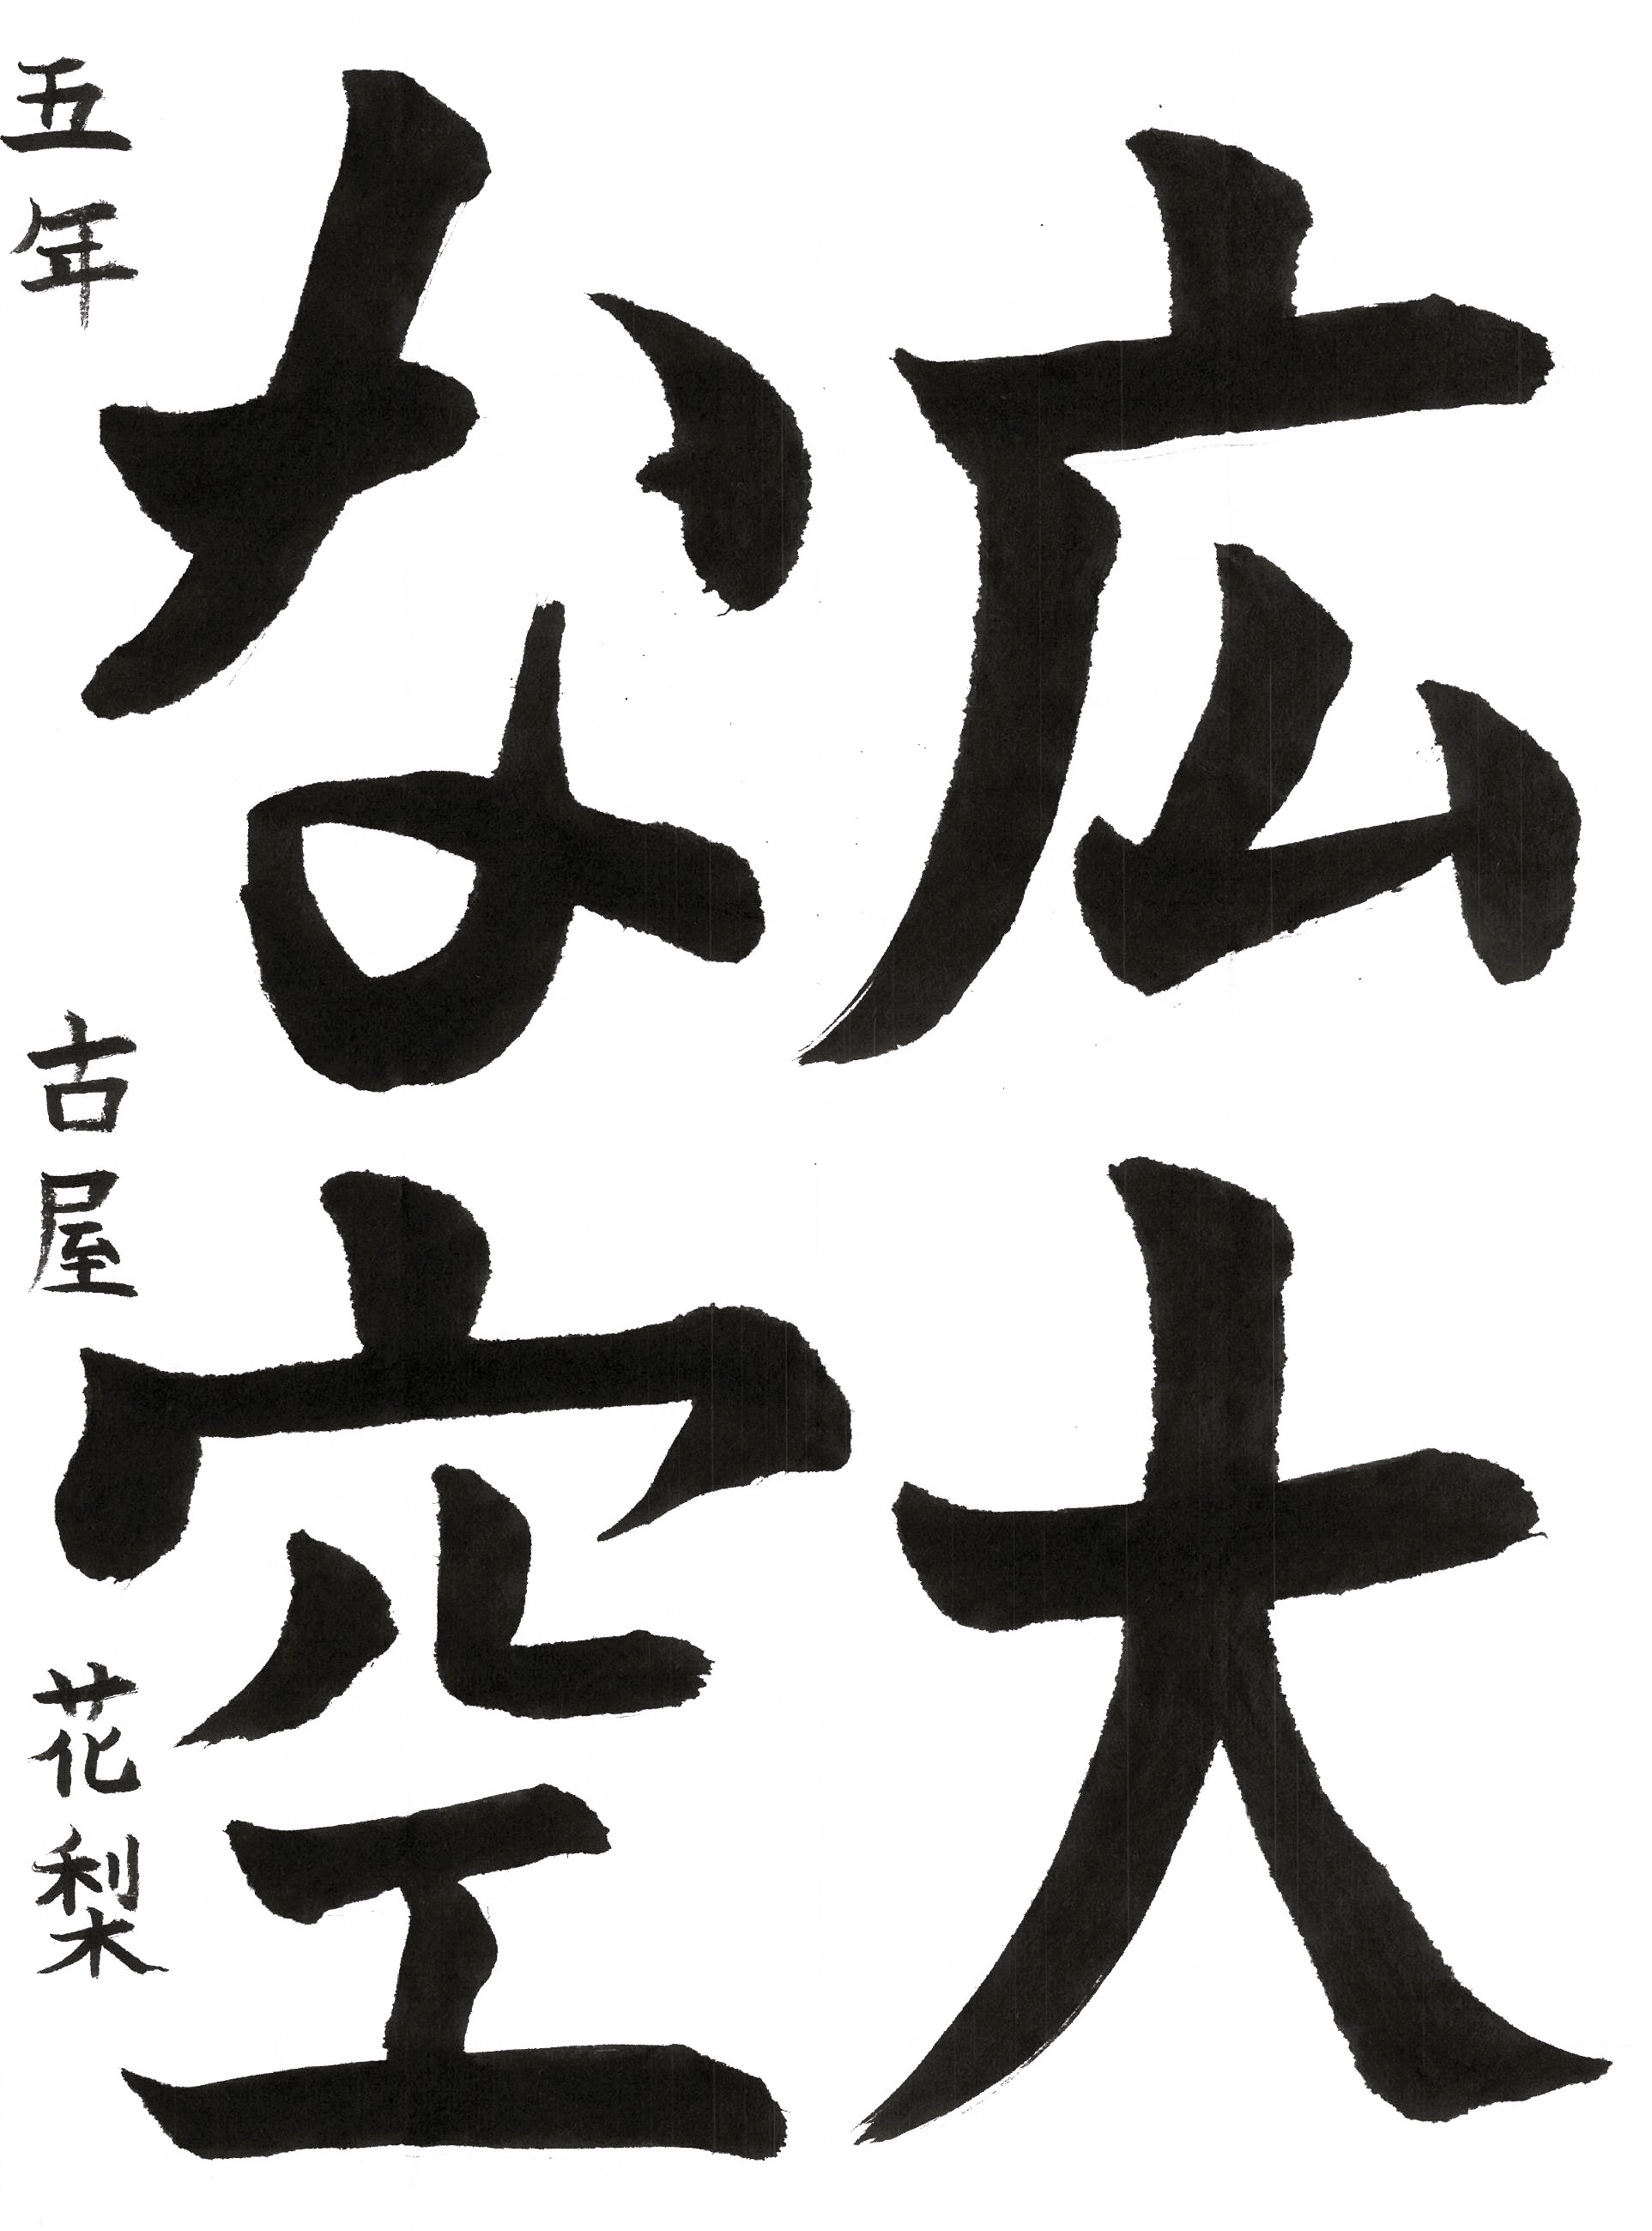 広大
な空
五年 古屋花梨